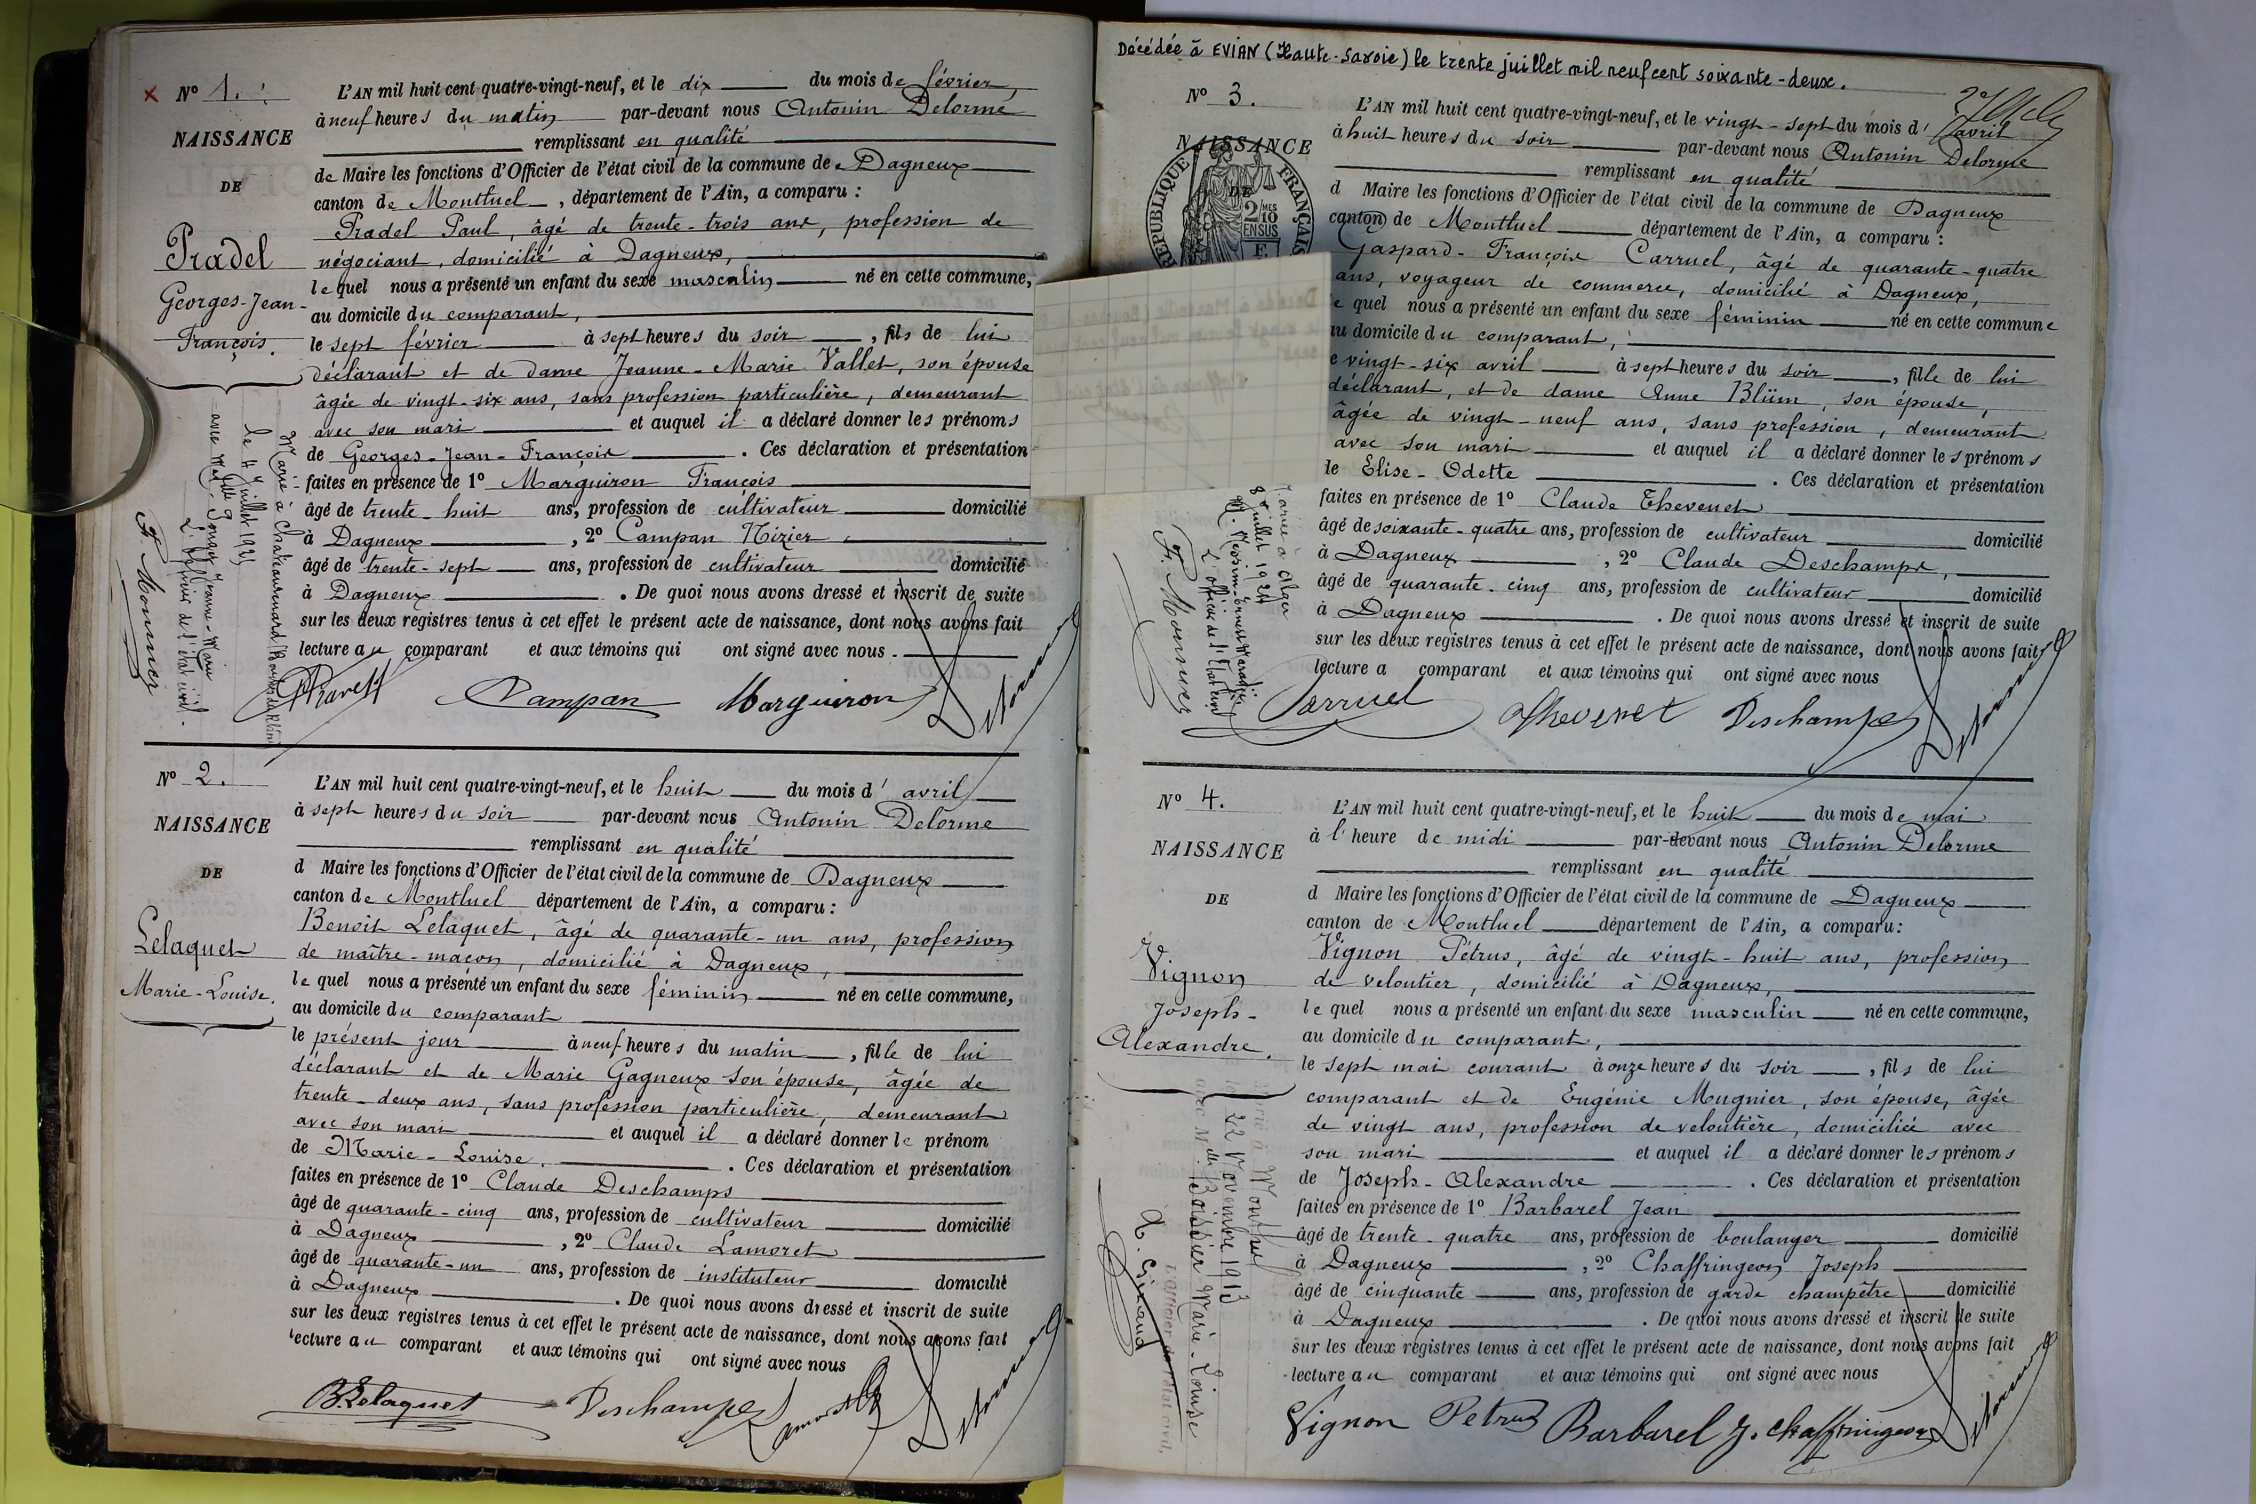 N° 1.
NAISSANCE
DE
Pradel
Georges-Jean-
François.
L'AN mil huit cent quatre-vingt-neuf, et le dix du mois de février,
à neuf heures du matin par-devant nous Antonin Delorme
remplissant en qualité
de Maire les fonctions d'Officier de l'état civil de la commune de Dagneux
canton de Montluel, département de l'Ain, a comparu :
Pradel Paul, âgé de trente-trois ans, profession de
négociant, domicilié à Dagneux,
lequel nous a présenté un enfant du sexe masculin né en cette commune,
au domicile du comparant,
le sept février à sept heures du soir, fils de lui
déclarant et de dame Jeanne-Marie Vallet, son épouse
âgée de vingt-six ans, sans profession particulière, demeurant
avec son mari et auquel il a déclaré donner les prénoms
de Georges-Jean-François. Ces déclaration et présentation
faites en présence de 1° Marguiron François
âgé de trente-huit ans, profession de cultivateur domicilié
à Dagneux, 2° Campan Nizier
âgé de trente-sept ans, profession de cultivateur domicilié
à Dagneux. De quoi nous avons dressé et inscrit de suite
sur les deux registres tenus à cet effet le présent acte de naissance, dont nous avons fait
lecture au comparant et aux témoins qui ont signé avec nous.
Marié à Chateaurenard
le 4 Juillet 1925
L'officier de l'état civil.
F. Monnier
Campan Marguiron Delorme
N° 2.
NAISSANCE
DE
Lelaquet
Marie-Louise.
L'AN mil huit cent quatre-vingt-neuf, et le huit du mois d'avril
à sept heures du soir par-devant nous Antonin Delorme
remplissant en qualité
d Maire les fonctions d'Officier de l'état civil de la commune de Dagneux
canton de Montluel département de l'Ain, a comparu :
Benoit Lelaquet, âgé de quarante-un ans, profession
de maître-maçon, domicilié à Dagneux,
lequel nous a présenté un enfant du sexe féminin né en cette commune,
au domicile du comparant
le présent jour à neuf heures du matin, fille de lui
déclarant et de Marie Gagneux son épouse, âgée de
trente-deux ans, sans profession particulière, demeurant
avec son mari et auquel il a déclaré donner le prénom
de Marie-Louise. Ces déclaration et présentation
faites en présence de 1° Claude Deschamps
âgé de quarante-cinq ans, profession de cultivateur domicilié
à Dagneux, 2° Claude Lamoret
âgé de quarante-un ans, profession de instituteur domicilié
à Dagneux. De quoi nous avons dressé et inscrit de suite
sur les deux registres tenus à cet effet le présent acte de naissance, dont nous avons fait
lecture au comparant et aux témoins qui ont signé avec nous
B. Lelaquet Deschamps Lamoret Delorme
Décédée à EVIAN (Haute-Savoie) le trente juillet mil neuf cent soixante-deux.
N° 3.
NAISSANCE
DE
RÉPUBLIQUE FRANÇAISE
2/10 MES
EN SUS
L'AN mil huit cent quatre-vingt-neuf, et le vingt-sept du mois d'avril
à huit heures du soir par-devant nous Antonin Delorme
remplissant en qualité
d Maire les fonctions d'Officier de l'état civil de la commune de Dagneux
canton de Montluel département de l'Ain, a comparu :
Gaspard-François Carruel, âgé de quarante-quatre
ans, voyageur de commerce, domicilié à Dagneux,
e quel nous a présenté un enfant du sexe féminin né en cette commune
au domicile du comparant,
e vingt-six avril à sept heures du soir, fille de lui
déclarant, et de dame Anne Blüm, son épouse,
âgée de vingt-neuf ans, sans profession, demeurant
avec son mari et auquel il a déclaré donner les prénoms
le Elise-Odette. Ces déclaration et présentation
faites en présence de 1° Claude Thevenet
âgé de soixante-quatre ans, profession de cultivateur domicilié
à Dagneux, 2° Claude Deschamps,
âgé de quarante-cinq ans, profession de cultivateur domicilié
à Dagneux. De quoi nous avons dressé et inscrit de suite
sur les deux registres tenus à cet effet le présent acte de naissance, dont nous avons fait
lecture a comparant et aux témoins qui ont signé avec nous
Mariée à Alger
8 Juillet 1924
L'officier de l'Etat civil
F. Monnier
Carruel Thevenet Deschamps Delorme
N° 4.
NAISSANCE
DE
Vignon
Joseph-
Alexandre.
L'AN mil huit cent quatre-vingt-neuf, et le huit du mois de mai
à l'heure de midi par-devant nous Antonin Delorme
remplissant en qualité
d Maire les fonctions d'Officier de l'état civil de la commune de Dagneux
canton de Montluel département de l'Ain, a comparu :
Vignon Pétrus, âgé de vingt-huit ans, profession
de veloutier, domicilié à Dagneux,
lequel nous a présenté un enfant du sexe masculin né en cette commune,
au domicile du comparant,
le sept mai courant à onze heures du soir, fils de lui
comparant et de Eugénie Mugnier, son épouse, âgée
de vingt ans, profession de veloutière, domiciliée avec
son mari et auquel il a déclaré donner les prénoms
de Joseph-Alexandre. Ces déclaration et présentation
faites en présence de 1° Barbarel Jean
âgé de trente-quatre ans, profession de boulanger domicilié
à Dagneux, 2° Chaffringeon Joseph
âgé de cinquante ans, profession de garde champêtre domicilié
à Dagneux. De quoi nous avons dressé et inscrit de suite
sur les deux registres tenus à cet effet le présent acte de naissance, dont nous avons fait
lecture au comparant et aux témoins qui ont signé avec nous
Marié à Montluel
le 22 Novembre 1913
avec Melle Marie-Louise
L'officier de l'état civil,
Vignon Petrus Barbarel J. Chaffringeon Delorme